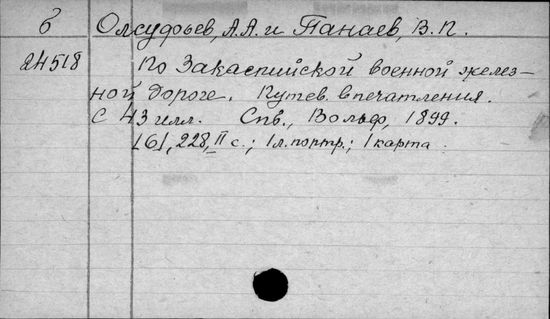 б Олсуфьев, А.А. и Панаев, В.П.
24518 По Закаспийской военной желез-
ной дороге. Путев. впечатления.
С 43 илл. Спб., Вольф, 1899.
[6], 228, II с.; 1 л. портр.; 1 карта.